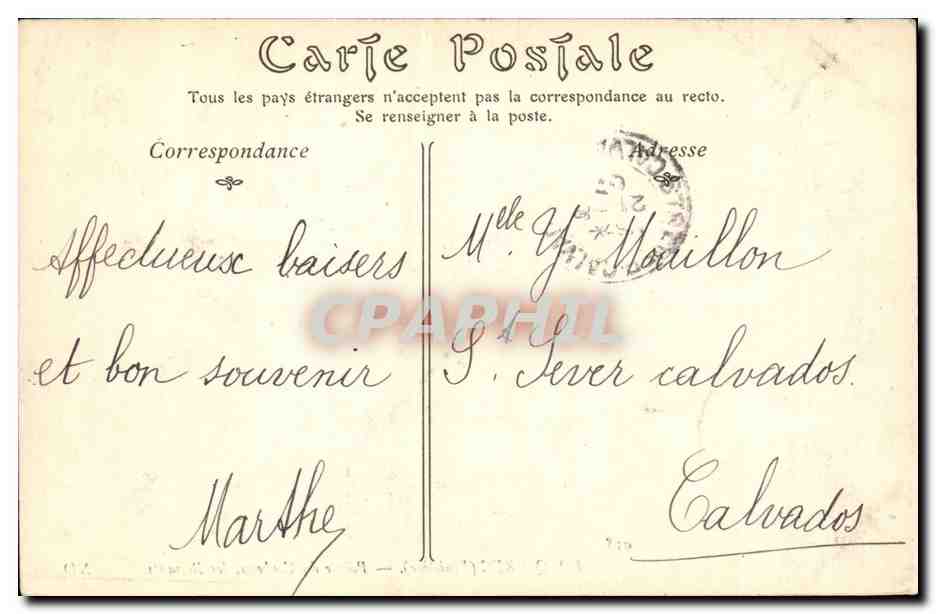 Carte Postale
Tous les pays étrangers n'acceptent pas la correspondance au recto.
Se renseigner à la poste.
Correspondance
Affectueux baisers
et bon souvenir
Marthe
Adresse
Mlle Y Mouillon
St. Sever calvados.
Calvados
CPAPHIL